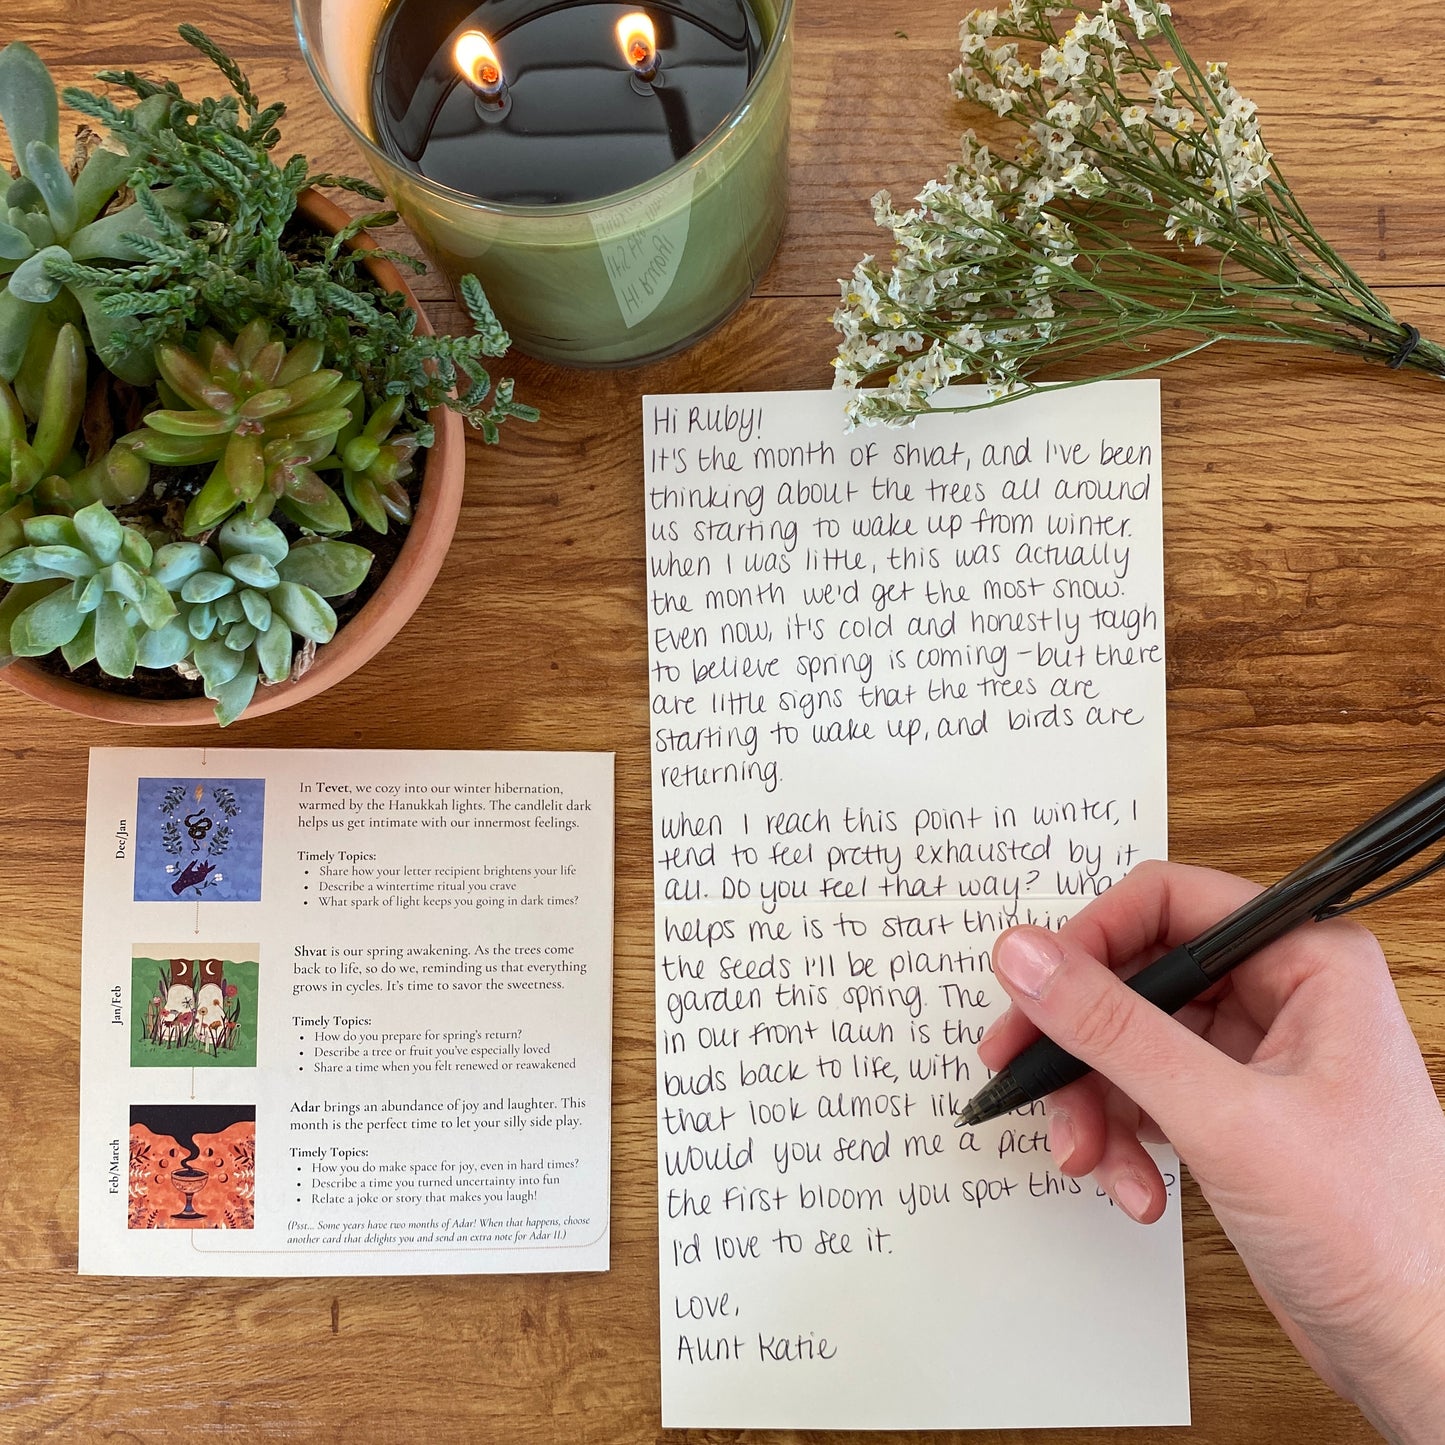 Hi Ruby!
It's the month of Shvat, and I've been
thinking about the trees all around
us starting to wake up from winter.
When I was little, this was actually
the month we'd get the most snow.
Even now, it's cold and honestly tough
to believe spring is coming - but there
are little signs that the trees are
starting to wake up, and birds are
returning.
When I reach this point in winter, I
tend to feel pretty exhausted by it
all. Do you feel that way? What
helps me is to start
the seeds I'll be
garden this spring. The
in our front lawn is the
buds back to life, with
that look almost
Would you send me a
the first bloom you spot this
I'd love to see it.
Love,
Aunt Katie
Dec/Jan
In Tevet, we cozy into our winter hibernation,
warmed by the Hanukkah lights. The candlelit dark
helps us get intimate with our innermost feelings.
Timely Topics:
• Share how your letter recipient brightens your life
• Describe a wintertime ritual you crave
• What spark of light keeps you going in dark times?
Jan/Feb
Shvat is our spring awakening. As the trees come
back to life, so do we, reminding us that everything
grows in cycles. It's time to savor the sweetness.
Timely Topics:
• How do you prepare for spring's return?
• Describe a tree or fruit you've especially loved
• Share a time when you felt renewed or reawakened
Feb/March
Adar brings an abundance of joy and laughter. This
month is the perfect time to let your silly side play.
Timely Topics:
• How you do make space for joy, even in hard times?
• Describe a time you turned uncertainty into fun
• Relate a joke or story that makes you laugh!
(Psst... Some years have two months of Adar! When that happens, choose
another card that delights you and send an extra note for Adar II.)